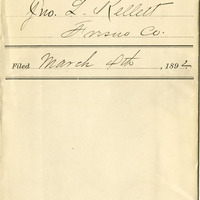 Jno. L. Kellett
Fergus Co.
Filed March 9th, 1892